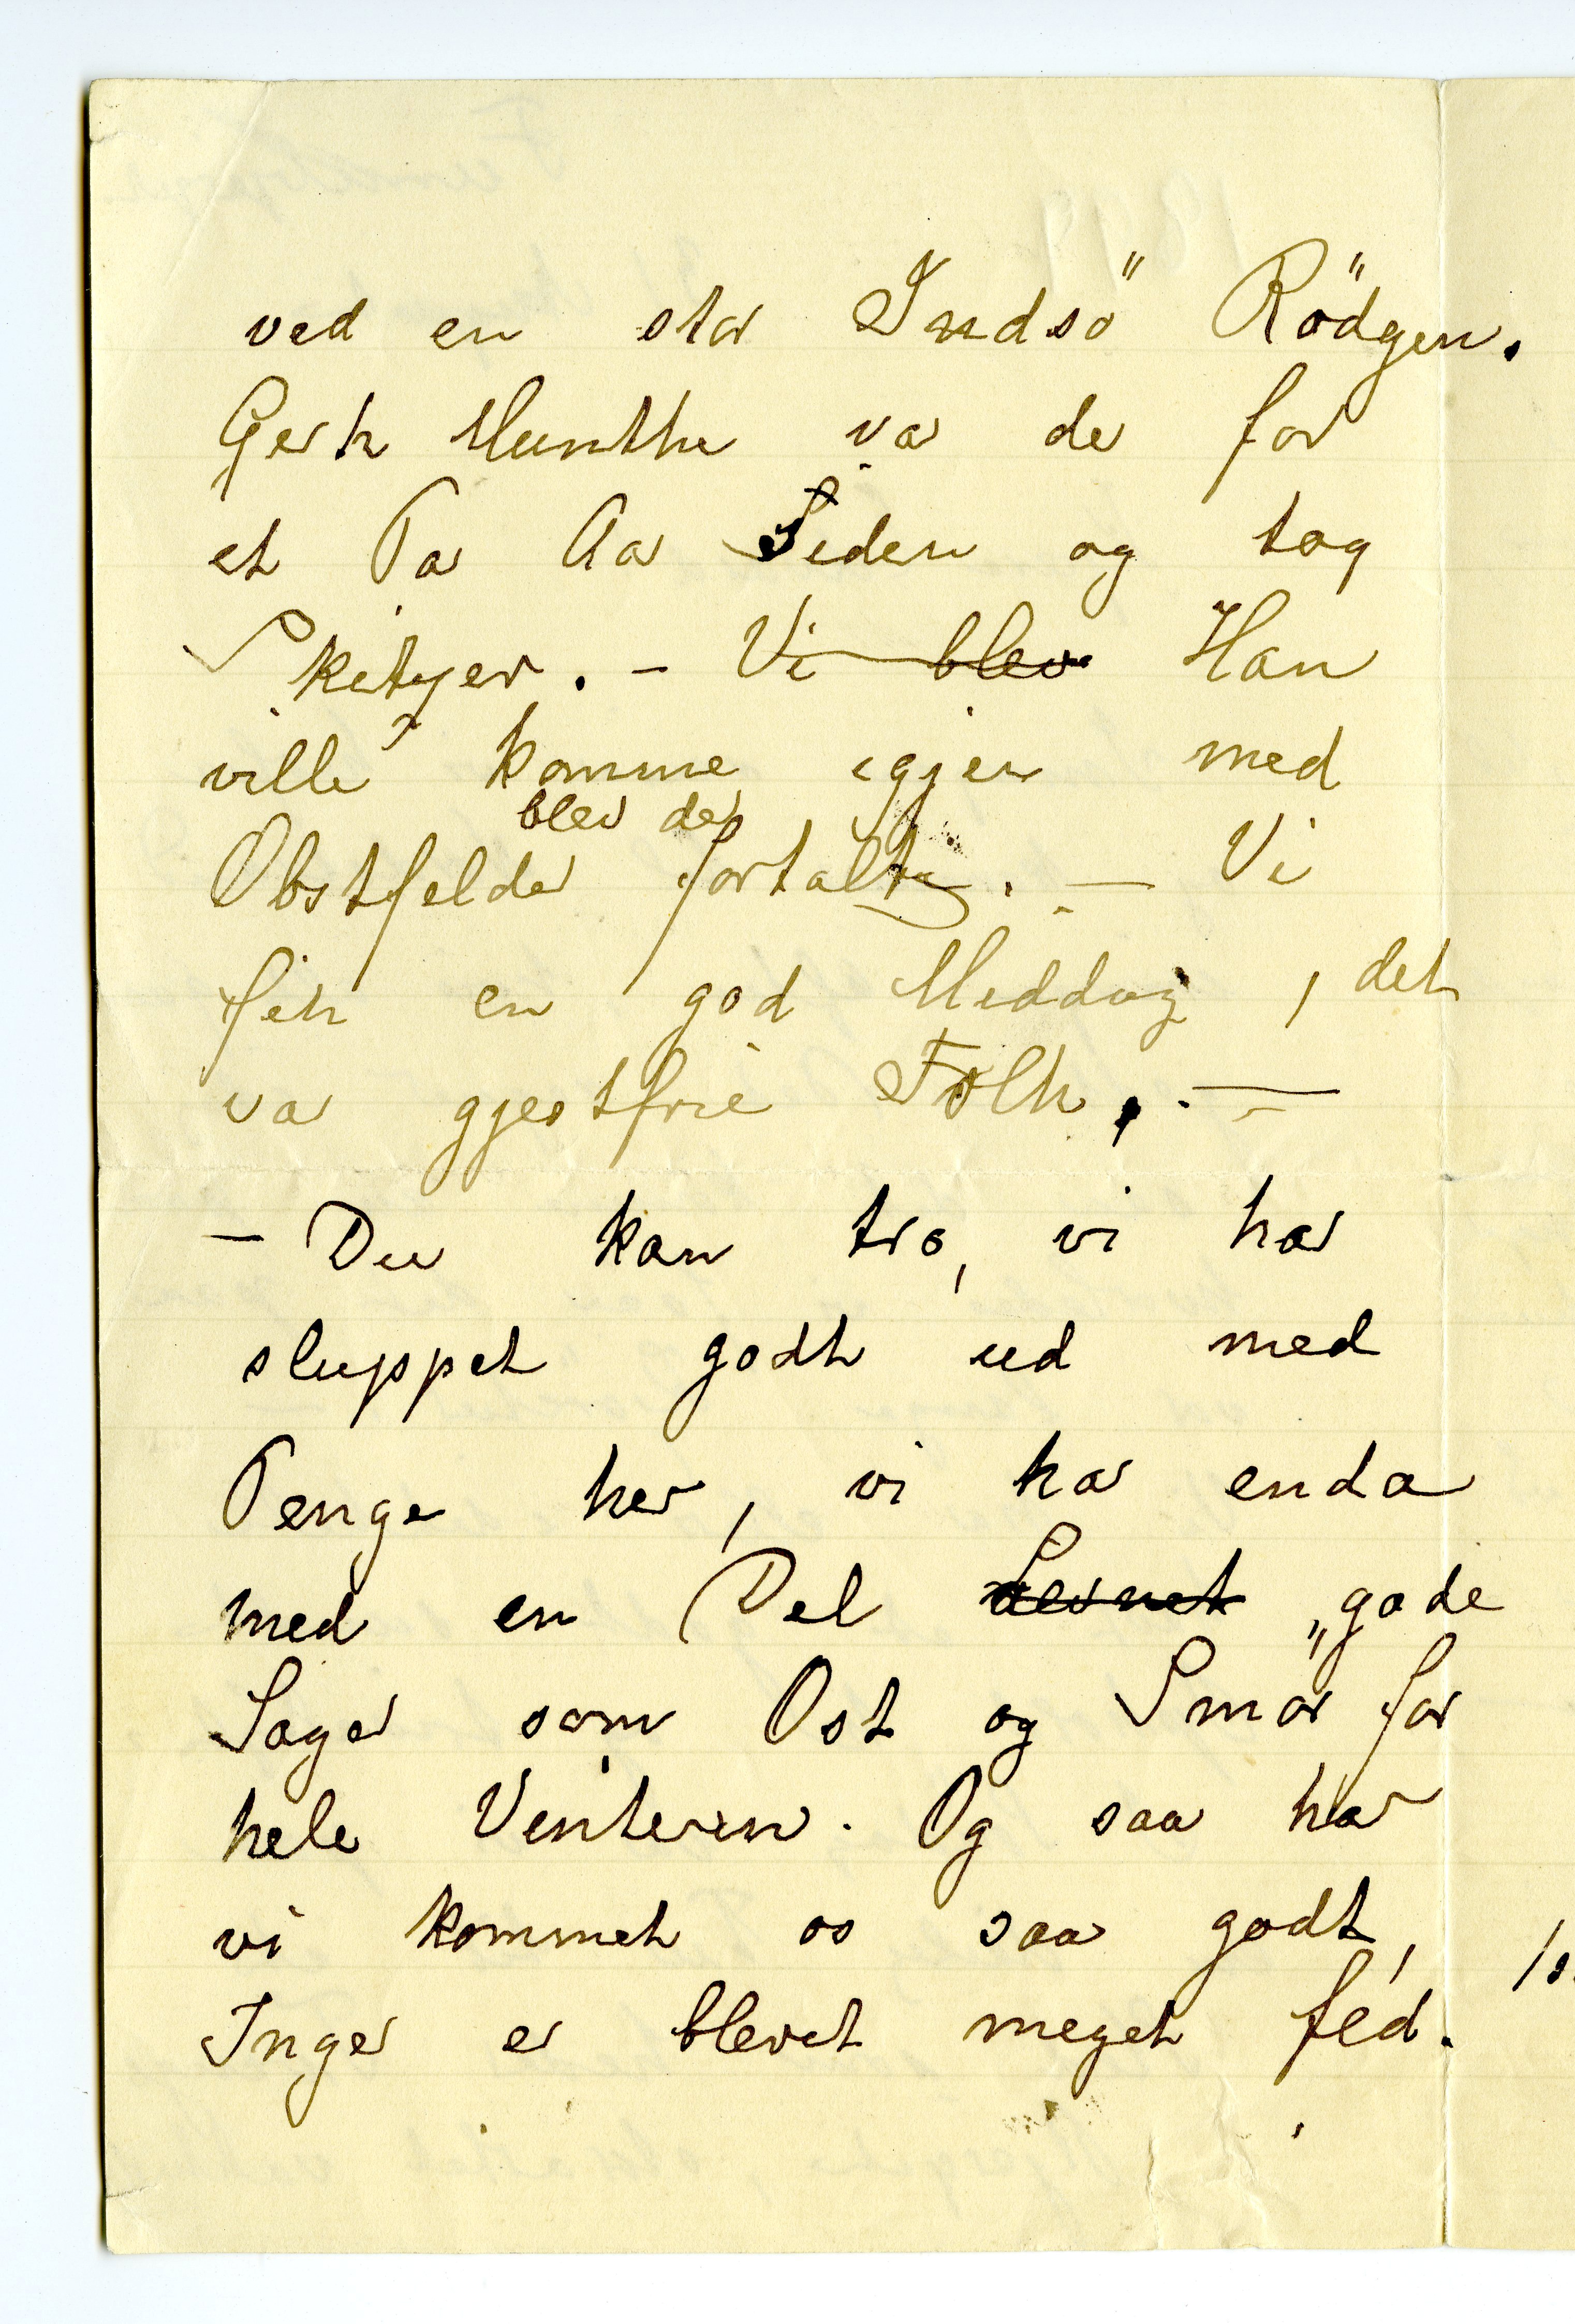 ved en stor Indsö Rödgen.
Gerh Munthe var der for
et Par Aar Siden og tog
Skitzer. – Vi blev Han
ville komme igjen med
blev det
Obstfelder fortalt. – Vi
fik en god Middag, det
var gjestfrie Folk. –
– Du kan tro, vi har
sluppet godt ud med
Penge her, vi har enda
med en Del „gode
Sager som Ost og Smör for
hele Vinteren. Og saa har
vi kommet os saa godt,
Inger er blevet meget fed.